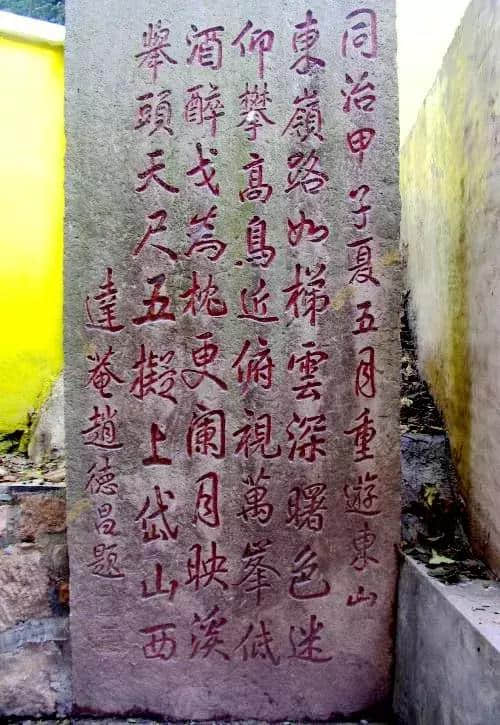 同治甲子夏五月重遊東山
東嶺路如梯雲深曙色迷
仰攀高鳥近俯視萬峯低
酒醉戈為枕更闌月映溪
舉頭天尺五擬上岱山西
達菴趙德昌題